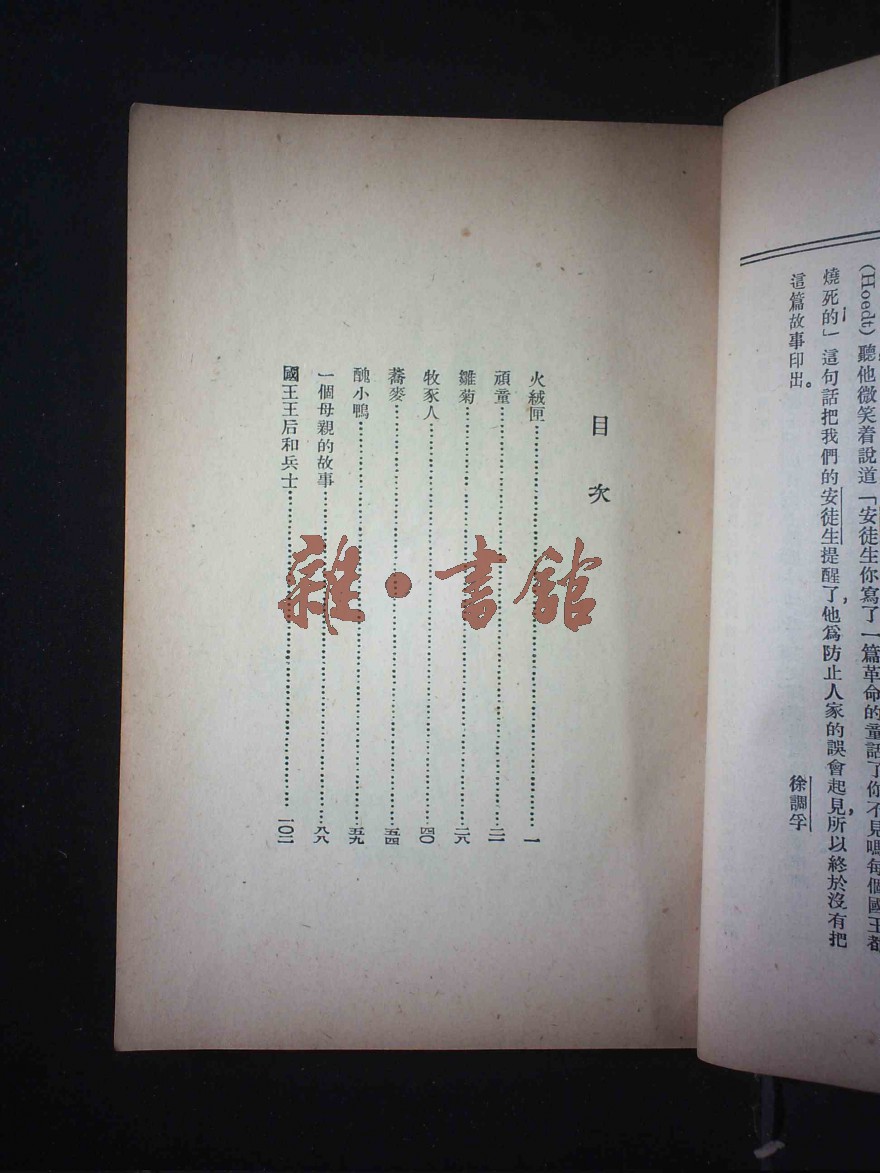 (Hoedt)聽他微笑着說道「安徒生你寫了一篇革命的童話了你不見嗎每個國王都
燒死的」這句話把我們的安徒生提醒了，他爲防止人家的誤會起見，所以終於沒有把
這篇故事印出。
徐調孚
目次
火絨匣……一
頑童……二一
雛菊……二八
牧豕人……四〇
蕎麥……五四
醜小鴨……五九
一個母親的故事……八八
國王王后和兵士……一〇二
雜·書館